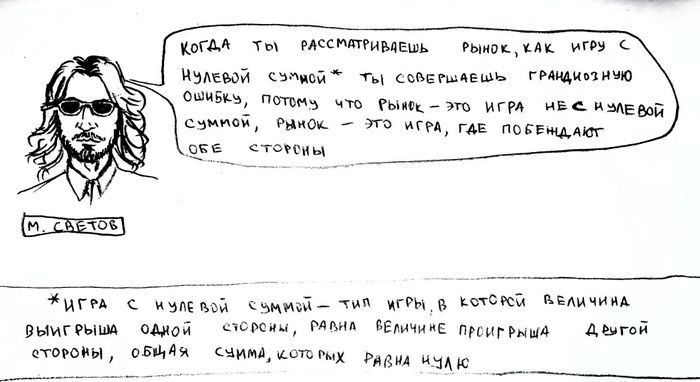 КОГДА ТЫ РАССМАТРИВАЕШЬ РЫНОК, КАК ИГРУ С
НУЛЕВОЙ СУММОЙ* ТЫ СОВЕРШАЕШЬ ГРАНДИОЗНУЮ
ОШИБКУ, ПОТОМУ ЧТО РЫНОК – ЭТО ИГРА НЕ С НУЛЕВОЙ
СУММОЙ, РЫНОК – ЭТО ИГРА, ГДЕ ПОБЕЖДАЮТ
ОБЕ СТОРОНЫ
М. СВЕТОВ
*ИГРА С НУЛЕВОЙ СУММОЙ – ТИП ИГРЫ, В КОТОРОЙ ВЕЛИЧИНА
ВЫИГРЫША ОДНОЙ СТОРОНЫ, РАВНА ВЕЛИЧИНЕ ПРОИГРЫША ДРУГОЙ
СТОРОНЫ, ОБЩАЯ СУММА, КОТОРЫХ РАВНА НУЛЮ